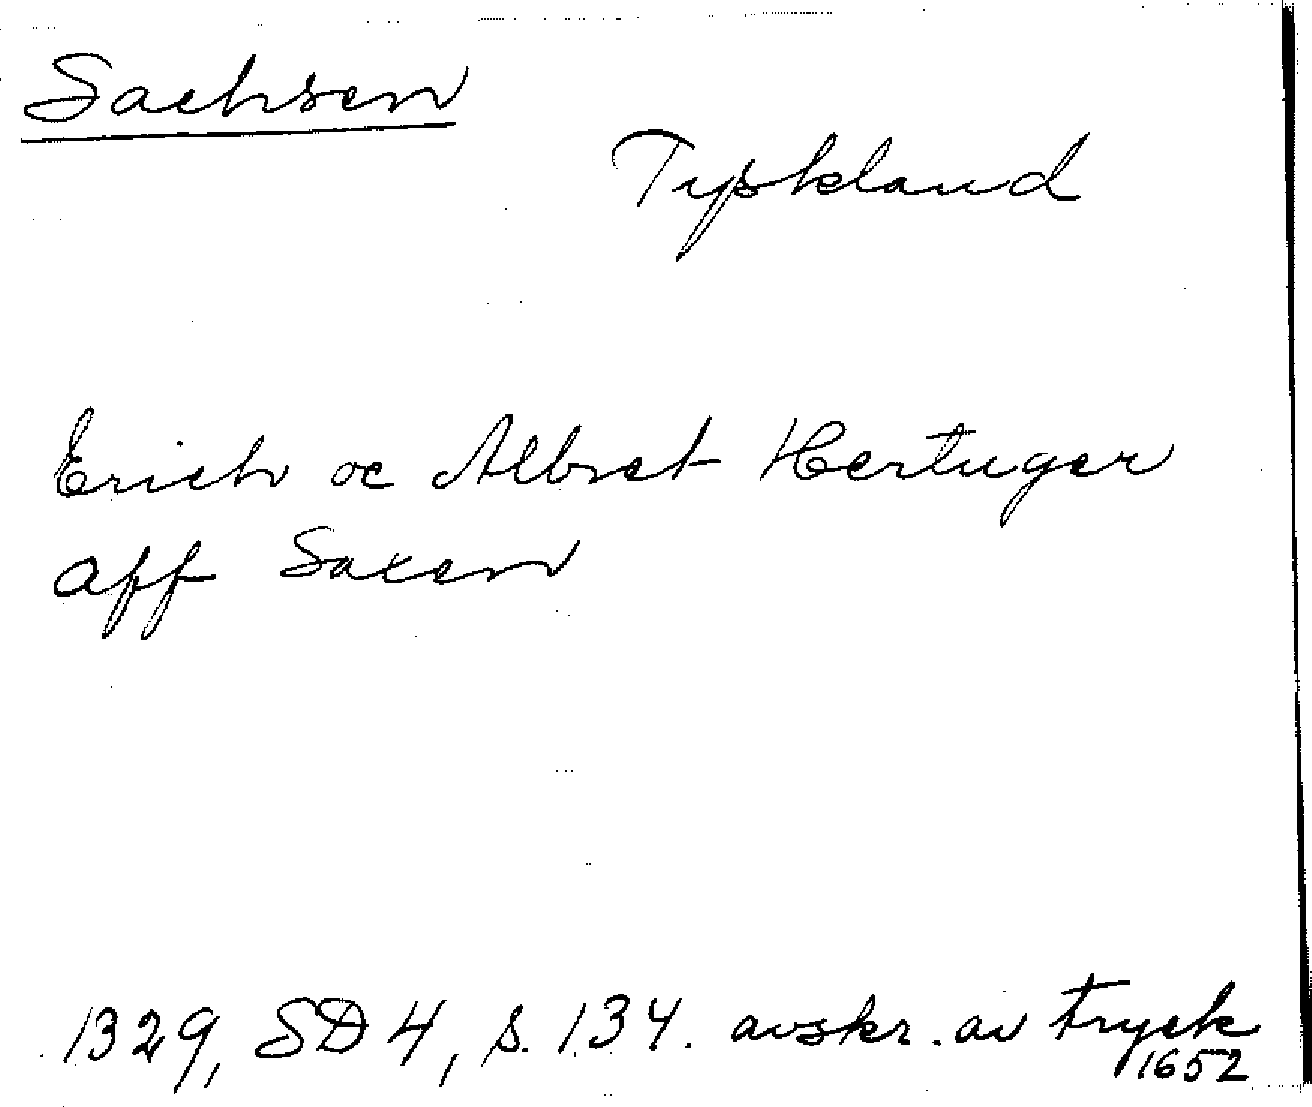 Sachsen
Tyskland
Erich oc Albret Hertuger
aff Saxen
1329, SD 4, s. 134. avskr. av tryck
1652